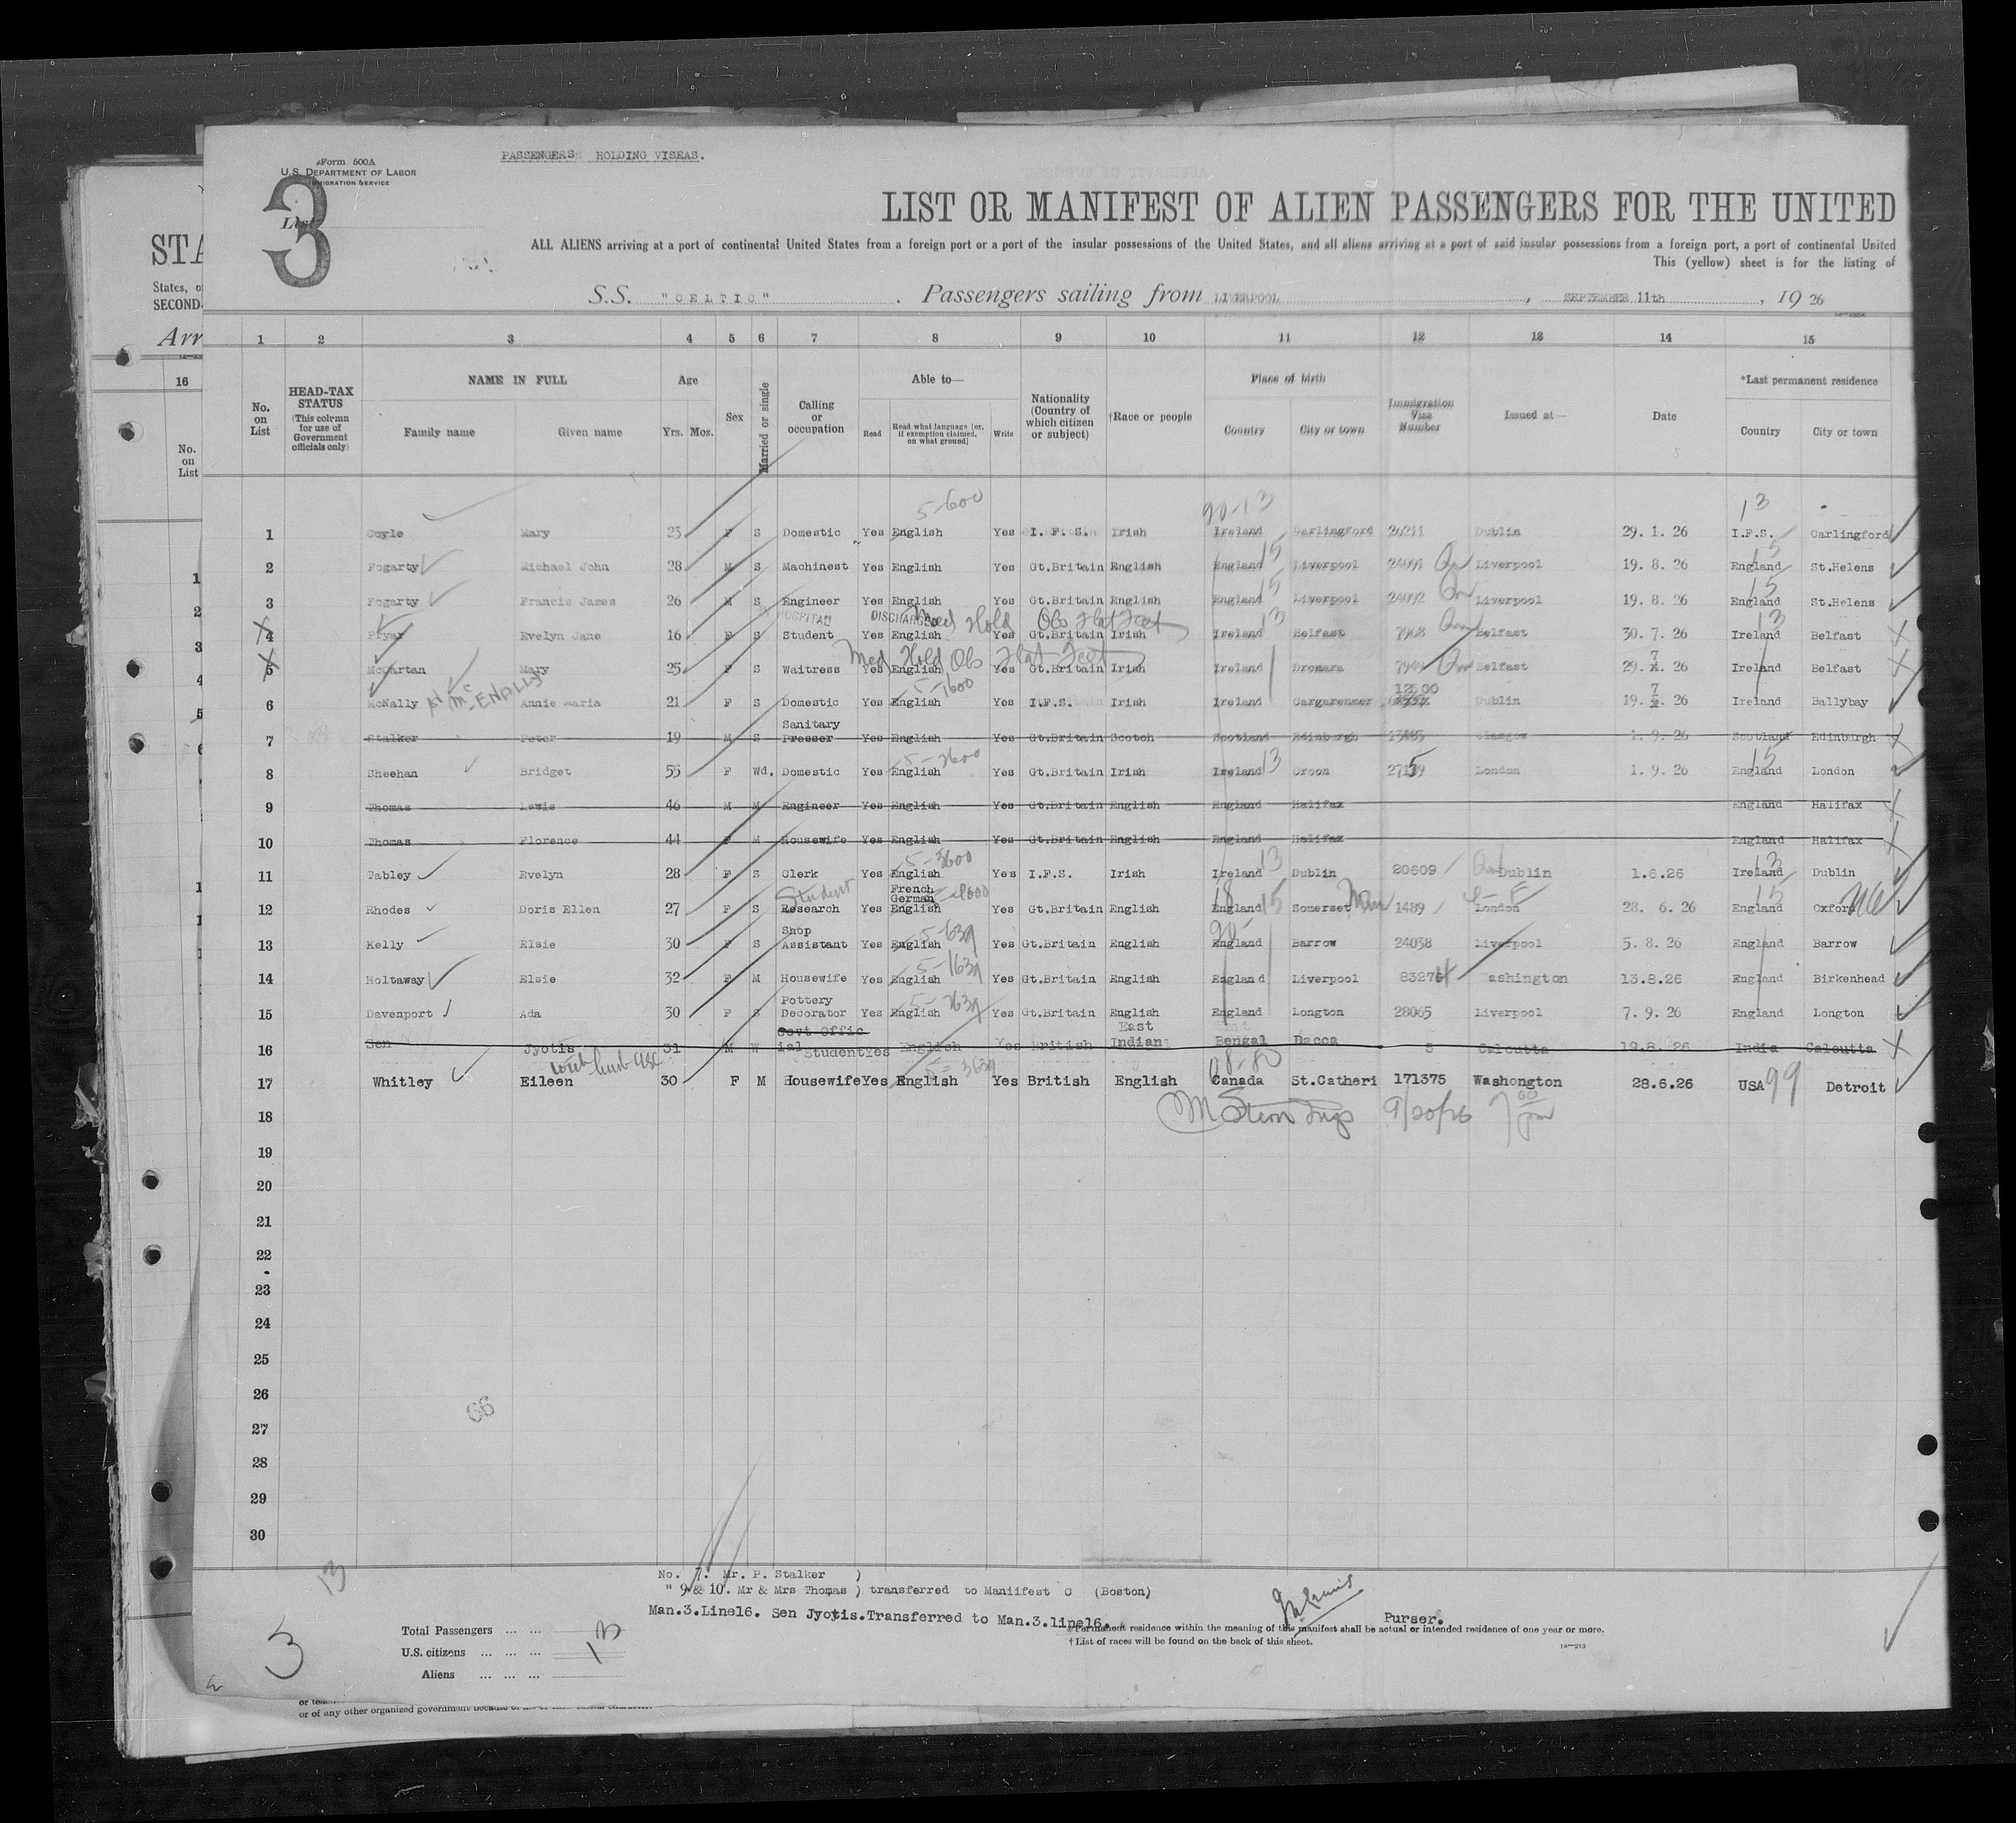 PASSENGERS HOLDING VISEAS.
Form 500A
U.S. DEPARTMENT OF LABOR
IMMIGRATION SERVICE
List
3
LIST OR MANIFEST OF ALIEN PASSENGERS FOR THE UNITED
ALL ALIENS arriving at a port of continental United States from a foreign port or a port of the insular possessions of the United States, and all aliens arriving at a port of said insular possessions from a foreign port, a port of continental United
This (yellow) sheet is for the listing of
S.S. "CELTIC". Passengers sailing from LIVERPOOL, SEPTEMBER 11th, 19 26
STA
States, o
SECOND-
Arr
16
No.
on
List
1 2 3 4 5 6 7 8 9 10 11 12 13 14 15
No. on List
HEAD-TAX STATUS (This column for use of Government officials only)
NAME IN FULL
Family name Given name
Age
Yrs. Mos.
Sex
Married or single
Calling or occupation
Able to—
Read Read what language [or, if exemption claimed, on what ground] Write
Nationality (Country of which citizen or subject)
†Race or people
Place of birth
Country City or town
Immigration Visa Number
Issued at—
Date
*Last permanent residence
Country City or town
5-600 90-13 13
1 Coyle Mary 23 F S Domestic Yes English Yes I. F. S. Irish Ireland Carlingford 26211 Dublin 29. 1. 26 I.F.S. Carlingford
15 15
2 Fogarty Michael John 28 M S Machinest Yes English Yes Gt.Britain English England Liverpool 24091 Liverpool 19. 8. 26 England St.Helens
15 15
3 Fogarty Francis James 26 M S Engineer Yes English Yes Gt.Britain English England Liverpool 24092 Liverpool 19. 8. 26 England St.Helens
HOSPITAL DISCHARGED Med Hold Obs Flat Feet 13 13
4 Fryar Evelyn Jane 16 F S Student Yes English Yes Gt.Britain Irish Ireland Belfast 7968 Belfast 30. 7. 26 Ireland Belfast
Med Hold Obs Flat Feet 7
5 McCartan Mary 25 F S Waitress Yes English Yes Gt.Britain Irish Ireland Dromara Belfast 29. 26 Ireland Belfast
McENALLY 5-1600 12900 7
6 McNally Annie Maria 21 F S Domestic Yes English Yes I.F.S. Irish Ireland Dublin 19. 26 Ireland Ballybay
Sanitary
7 Stalker Peter 19 M S Presser Yes English Yes Gt.Britain Scotch Scotland Edinburgh Glasgow 1. 9. 26 Scotland Edinburgh
5-2600 13 5 15
8 Sheehan Bridget 55 F Wd. Domestic Yes English Yes Gt.Britain Irish Ireland Croon London 1. 9. 26 England London
9 Thomas Lewis 46 M M Engineer Yes English Yes Gt.Britain English England Halifax England Halifax
10 Thomas Florence 44 F M Housewife Yes English Yes Gt.Britain English England Halifax England Halifax
5-3600 13 13
11 Tabley Evelyn 28 F S Clerk Yes English Yes I.F.S. Irish Ireland Dublin 20609 Dublin 1.6.26 Ireland Dublin
Student French German 5-4000 18 15 15
12 Rhodes Doris Ellen 27 F S Research Yes English Yes Gt.Britain English England Somerset 1489 London 28. 6. 26 England Oxford
Shop 5-639 90-
13 Kelly Elsie 30 F S Assistant Yes English Yes Gt.Britain English England Barrow 24038 Liverpool 5. 8. 26 England Barrow
5-1639
14 Holtaway Elsie 32 F M Housewife Yes English Yes Gt.Britain English England Liverpool 83276 Washington 13.8.26 England Birkenhead
Pottery 5-2639
15 Davenport Ada 30 F S Decorator Yes English Yes Gt.Britain English England Longton 28065 Liverpool 7. 9. 26 England Longton
Govt Offic East
16 Sen Jyotis 31 M W ial Student Yes English Yes British Indian Bengal Dacca 5 Calcutta 19.8. 26 India Calcutta
with husb USC 5-3639 08-80 99
17 Whitley Eileen 30 F M Housewife Yes English Yes British English Canada St.Catheri 171375 Washongton 28.6.26 USA Detroit
18 M Stern Insp 9/20/26 7 00 pm
19
20
21
22
23
24
25
26
27
28
29
30
66
13
No. 7. Mr. P. Stalker )
" 9 & 10. Mr & Mrs Thomas ) transferred to Maniifest C (Boston)
Man.3.Line16. Sen Jyotis.Transferred to Man.3.line16.
Purser.
Total Passengers
U.S. citizens
Aliens
13
3
*Permanent residence within the meaning of this manifest shall be actual or intended residence of one year or more.
†List of races will be found on the back of this sheet.
14—213
or of any other organized government because of